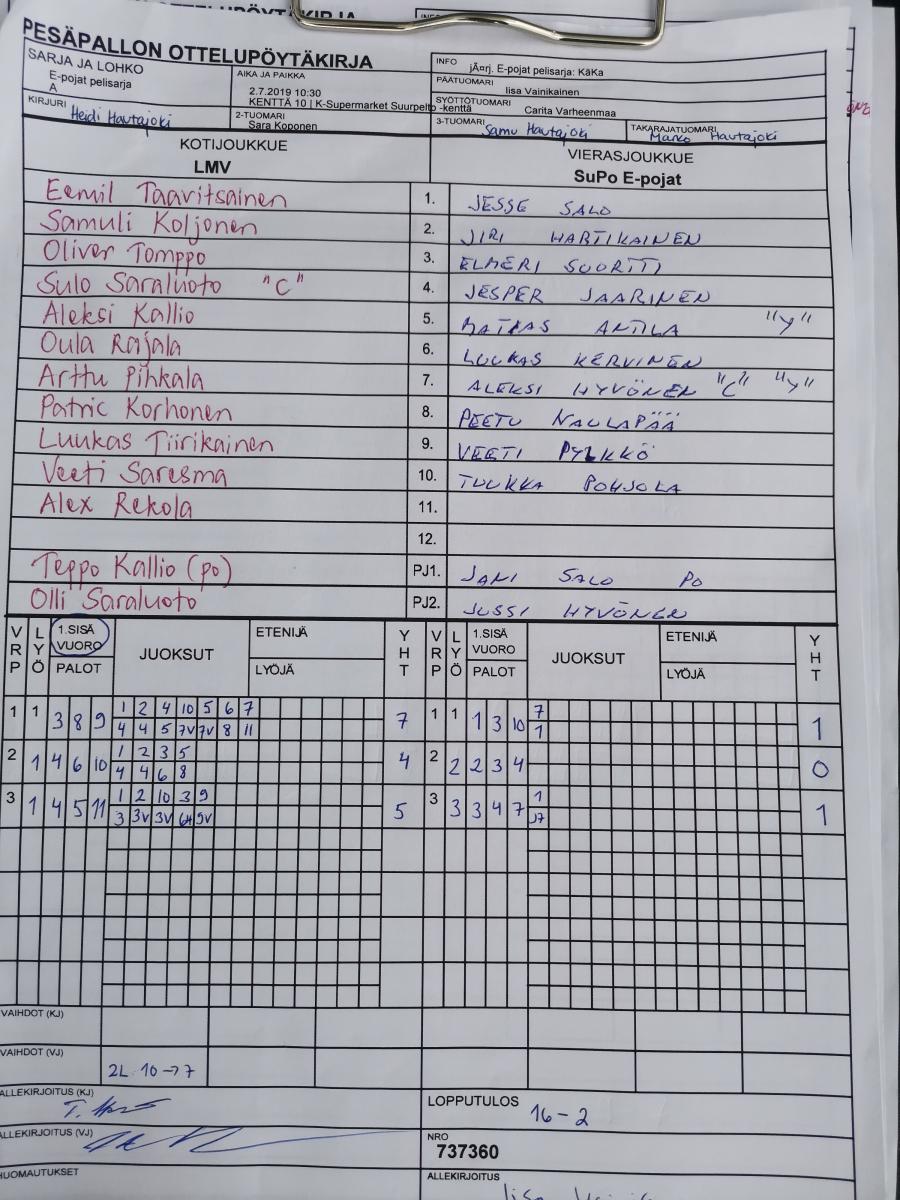 PESÄPALLON OTTELUPÖYTÄKIRJA
SARJA JA LOHKO
E-pojat pelisarja
A
AIKA JA PAIKKA
2.7.2019 10:30
KENTTÄ 10 | K-Supermarket Suurpelto -kenttä
INFO
jÄ¤rj. E-pojat pelisarja: KäKa
PÄÄTUOMARI
Iisa Vainikainen
SYÖTTÖTUOMARI
Carita Varheenmaa
KIRJURI Heidi Hautajoki
2-TUOMARI
Sara Koponen
3-TUOMARI Samu Hautajoki
TAKARAJATUOMARI
Marko Hautajoki
KOTIJOUKKUE
LMV
VIERASJOUKKUE
SuPo E-pojat
Eemil Taavitsainen 1. JESSE SALO
Samuli Koljonen 2. JIRI HARTIKAINEN
Oliver Tomppo 3. ELMERI SUORTTI
Sulo Saraluoto "C" 4. JESPER JAARINEN
Aleksi Kallio 5. MATIAS ANTILA "Y"
Oula Rajala 6. LUUKAS KERVINEN
Arttu Pihkala 7. ALEKSI HYVÖNEN "C" "Y"
Patric Korhonen 8. PEETU NAULAPÄÄ
Luukas Tiirikainen 9. VEETI PYLKKÖ
Veeti Saresma 10. TUUKKA POHJOLA
Alex Rekola 11.
12.
Teppo Kallio (po) PJ1. JANI SALO PO
Olli Saraluoto PJ2. JUSSI HYVÖNEN
VRP LYÖ 1.SISÄ VUORO PALOT JUOKSUT ETENIJÄ LYÖJÄ YHT VRP LYÖ 1.SISÄ VUORO PALOT JUOKSUT ETENIJÄ LYÖJÄ YHT
1 1 3 8 9 1 2 4 10 5 6 7 7 1 1 1 3 10 7 1
4 4 5 7V 7V 8 11 1
2 1 4 6 10 1 2 3 5 4 2 2 2 3 4 0
4 4 6 8
3 1 4 5 11 1 2 10 3 9 5 3 3 3 4 7 1 1
3 3V 3V 9V J7
VAIHDOT (KJ)
VAIHDOT (VJ)
2L 10->7
ALLEKIRJOITUS (KJ)
LOPPUTULOS
16-2
ALLEKIRJOITUS (VJ)
NRO
737360
HUOMAUTUKSET
ALLEKIRJOITUS
Iisa